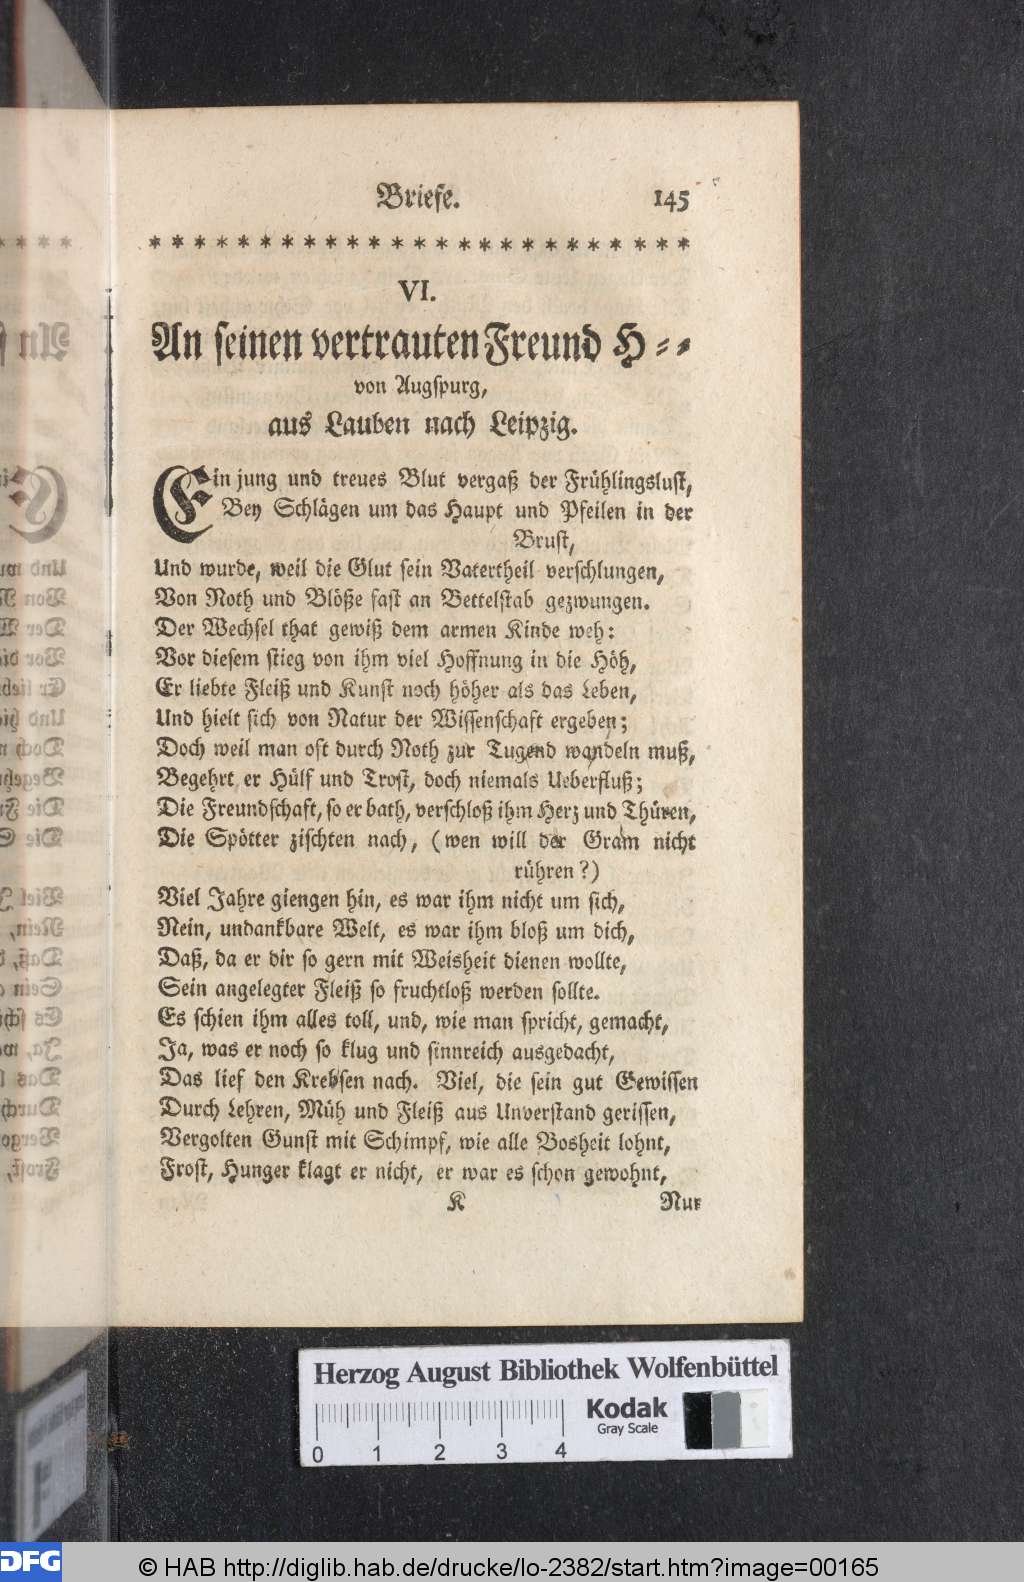 Briefe. 145
* * * * * * * * * * * * * * * * * * * * * * * * *
VI.
An seinen vertrauten Freund H⸗⸗
von Augspurg,
aus Lauben nach Leipzig.
Ein jung und treues Blut vergaß der Frühlingslust,
Bey Schlägen um das Haupt und Pfeilen in der
Brust,
Und wurde, weil die Glut sein Vatertheil verschlungen,
Von Noth und Blöße fast an Bettelstab gezwungen.
Der Wechsel that gewiß dem armen Kinde weh:
Vor diesem stieg von ihm viel Hoffnung in die Höh,
Er liebte Fleiß und Kunst noch höher als das Leben,
Und hielt sich von Natur der Wissenschaft ergeben;
Doch weil man oft durch Noth zur Tugend wandeln muß,
Begehrt er Hülf und Trost, doch niemals Ueberfluß;
Die Freundschaft, so er bath, verschloß ihm Herz und Thüren,
Die Spötter zischten nach, (wen will der Gram nicht
rühren?)
Viel Jahre giengen hin, es war ihm nicht um sich,
Nein, undankbare Welt, es war ihm bloß um dich,
Daß, da er dir so gern mit Weisheit dienen wollte,
Sein angelegter Fleiß so fruchtloß werden sollte.
Es schien ihm alles toll, und, wie man spricht, gemacht,
Ja, was er noch so klug und sinnreich ausgedacht,
Das lief den Krebsen nach. Viel, die sein gut Gewissen
Durch Lehren, Müh und Fleiß aus Unverstand gerissen,
Vergolten Gunst mit Schimpf, wie alle Bosheit lohnt,
Frost, Hunger klagt er nicht, er war es schon gewohnt,
K Nur
Herzog August Bibliothek Wolfenbüttel
Kodak
Gray Scale
0 1 2 3 4
DFG © HAB http://diglib.hab.de/drucke/lo-2382/start.htm?image=00165